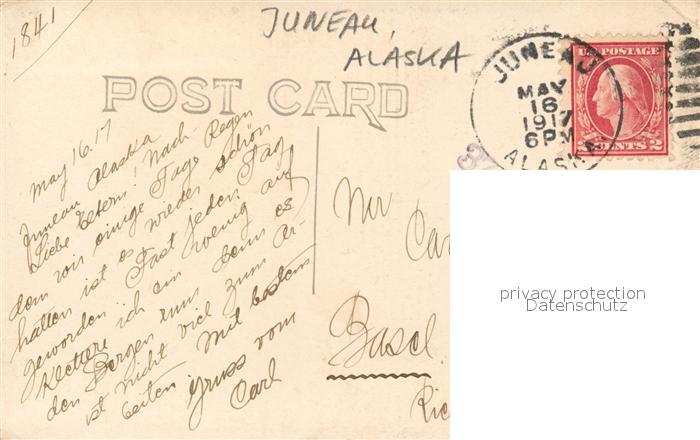 1841
JUNEAU,
ALASKA
POST CARD
JUNEAU
MAY
16
1917
6 PM
ALASKA.
U.S. POSTAGE
2 CENTS 2
May 16.17
Juneau Alaska
Liebe Eltern! Nach-
dem wir einige Tage Regen
hatten ist es wieder schön
geworden Fast jeden Tag
klettere ich ein wenig auf
den Bergen rum denn es
ist nicht viel zum Ar-
beiten Mit bestem
Gruss vom
Carl
Mr Car
Basel
Ric
privacy protection
Datenschutz